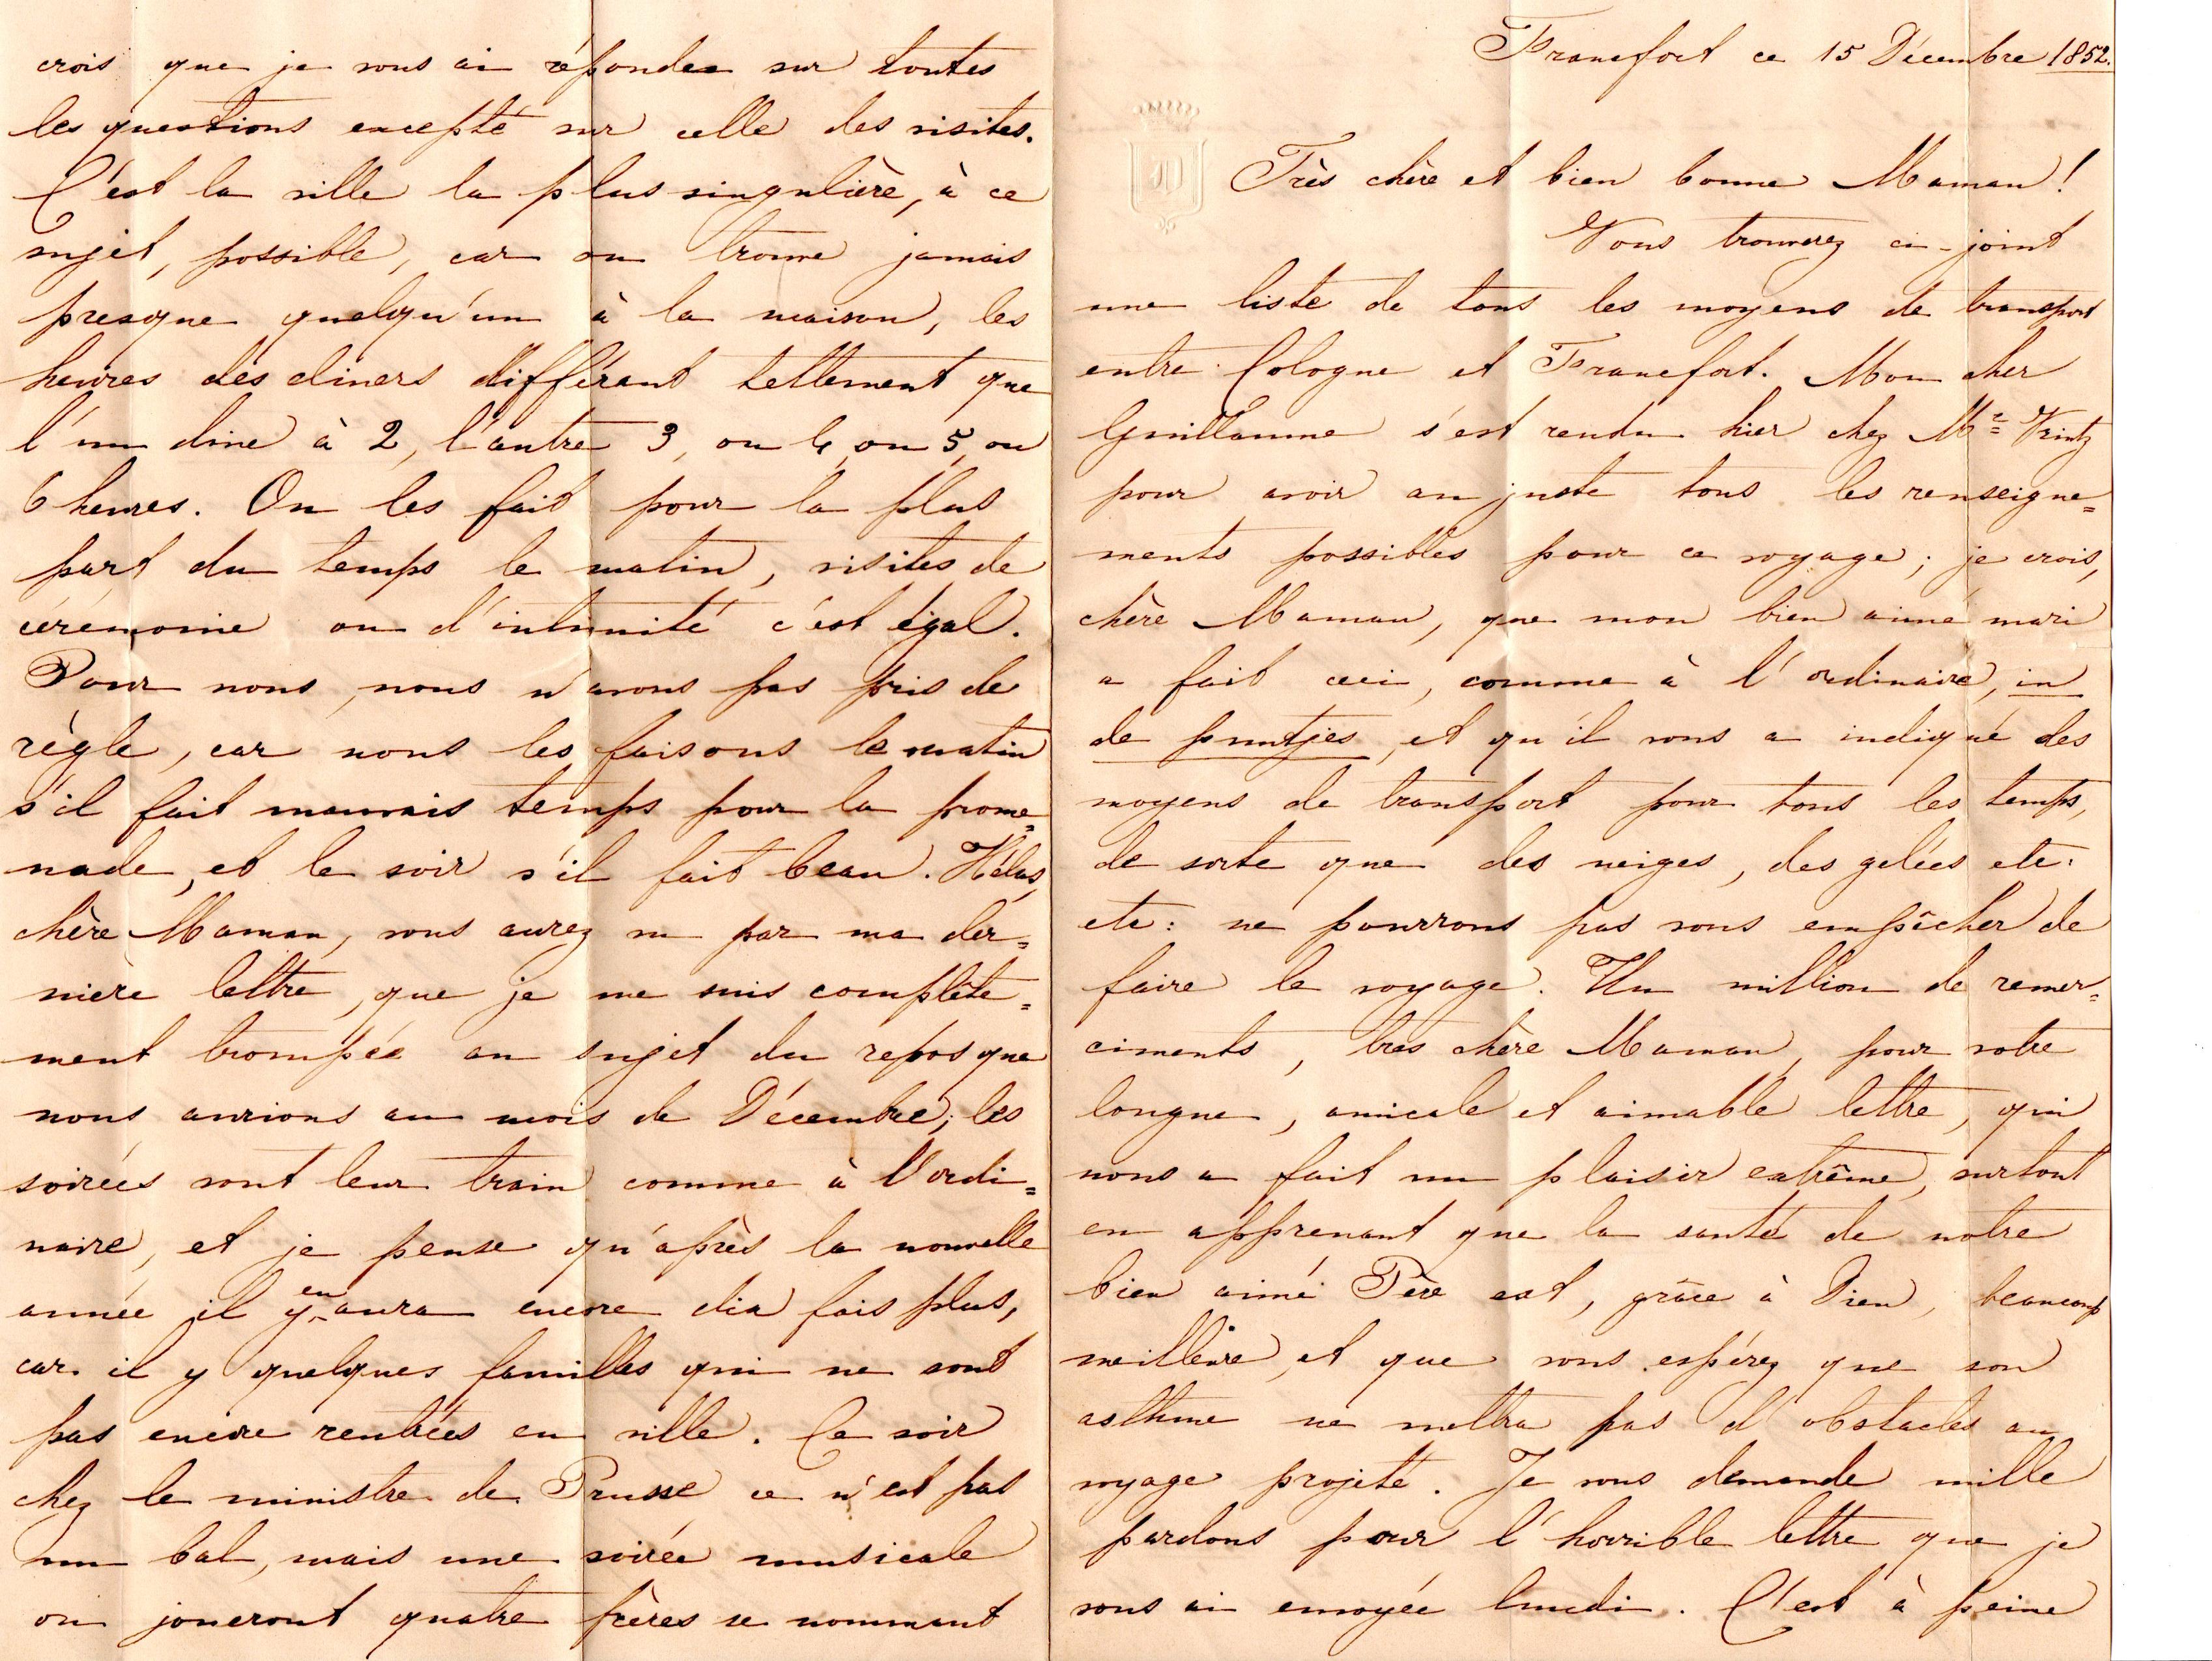 Francfort ce 15 Décembre 1852.
Très chère et bien bonne Maman!
Vous trouverez ci-joint
une liste de tous les moyens de transport
entre Cologne et Francfort. Mon cher
Guillaume s'est rendu hier chez Mr Vrintz
pour avoir au juste tous les renseigne=
ments possibles pour ce voyage; je crois,
chère Maman, que mon bien aimé mari
a fait ceci, comme à l'ordinaire, in
de puntjes, et qu'il vous a indiqué des
moyens de transport pour tous les temps,
de sorte que des neiges, des gelées etc:
etc: ne pourrons pas vous empêcher de
faire le voyage. Un million de remer=
ciments, très chère Maman, pour votre
longue, amicale et aimable lettre, qui
nous a fait un plaisir extrême, surtout
en apprenant que la santé de notre
bien aimé Père est, grâce à Dieu, beaucoup
meilleure, et que vous espérez que son
asthme ne mettra pas d'obstacles au
voyage projeté. Je vous demande mille
pardons pour l'horrible lettre que je
vous ai envoyée lundi. C'est à peine
crois que je vous ai répondee sur toutes
les questions excepté sur celle des visites.
C'est la ville la plus singulière, à ce
sujet, possible, car on trouve jamais
presque quelqu'un à la maison, les
heures des diners différant tellement que
l'un dine à 2, l'autre 3, ou 4, ou 5, ou
6 heures. On les fait pour la plus
part du temps le matin, visites de
cérémonie ou d'intimité c'est égal.
Pour nous, nous n'avons pas pris de
règle, car nous les faisons le matin
s'il fait mauvais temps pour la prome=
nade, et le soir s'il fait beau. Hélas,
chère Maman, vous aurez vu par ma der=
nière lettre, que je me suis complète=
ment trompée au sujet du repos que
nous aurions au mois de Décembre; les
soirées vont leur train comme à l'ordi=
naire, et je pense qu'après la nouvelle
année il y en aura encore dix fois plus,
car il y quelques familles qui ne sont
pas encore rentrées en ville. Ce soir
chez le ministre de Prusse ce n'est pas
un bal, mais une soirée musicale
où joueront quatre frères se nommant